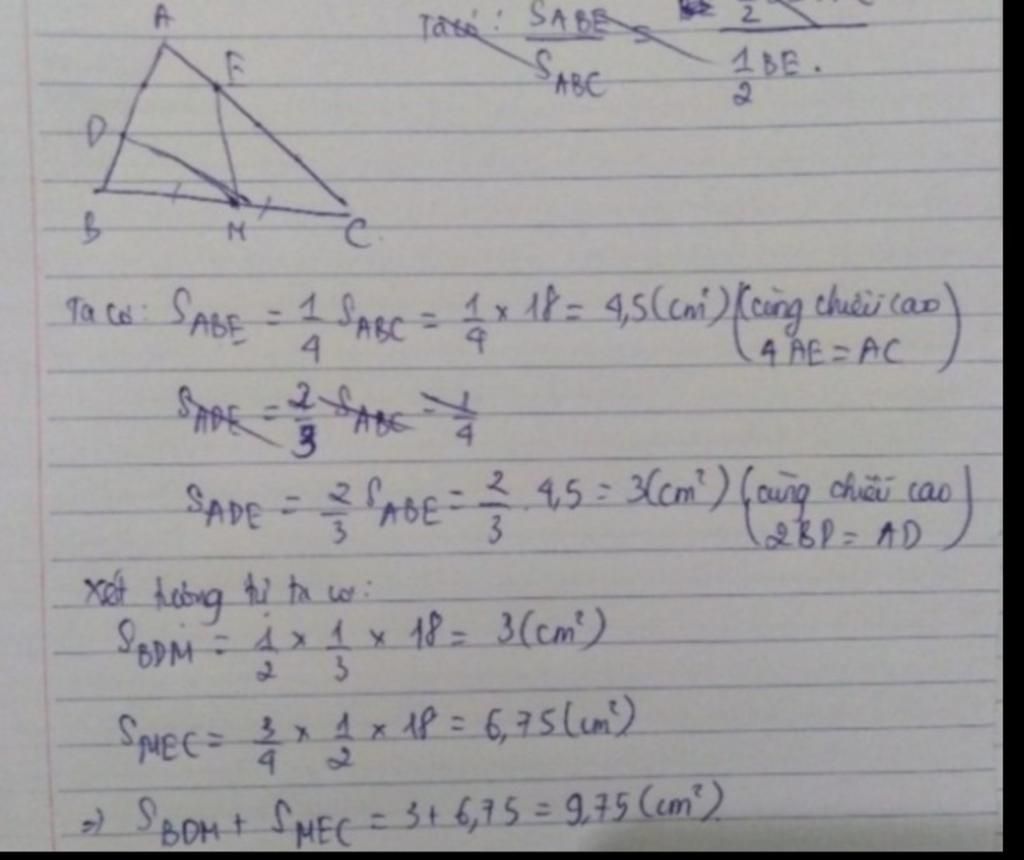 A
E
D
B
M
C
Ta có: S_ABE / S_ABC =
1/2 BE.
Ta có: S_ABE = 1/4 S_ABC = 1/4 × 18 = 4,5 (cm²) (cùng chiều cao
4 AE = AC)
S_ADE = 2/3 S_ABC = 1/4
S_ADE = 2/3 S_ABE = 2/3 . 4,5 = 3 (cm²) (cùng chiều cao
2BD = AD)
Xét tương tự ta có:
S_BDM = 1/2 × 1/3 × 18 = 3 (cm²)
S_MEC = 3/4 × 1/2 × 18 = 6,75 (cm²)
⇒ S_BDM + S_MEC = 3 + 6,75 = 9,75 (cm²)